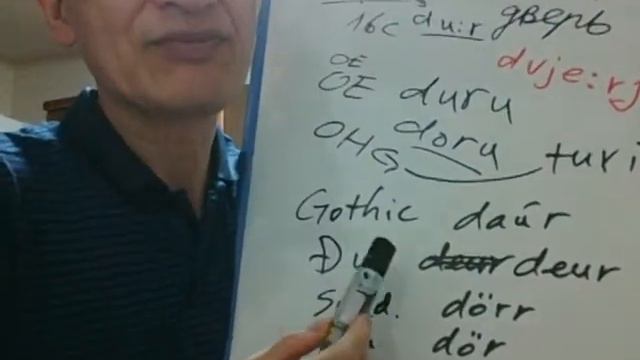 16c du:r дверь
dvje:rj
OE
OE duru
OHG doru turi
Gothic daúr
Du deur deur
dörr
dör